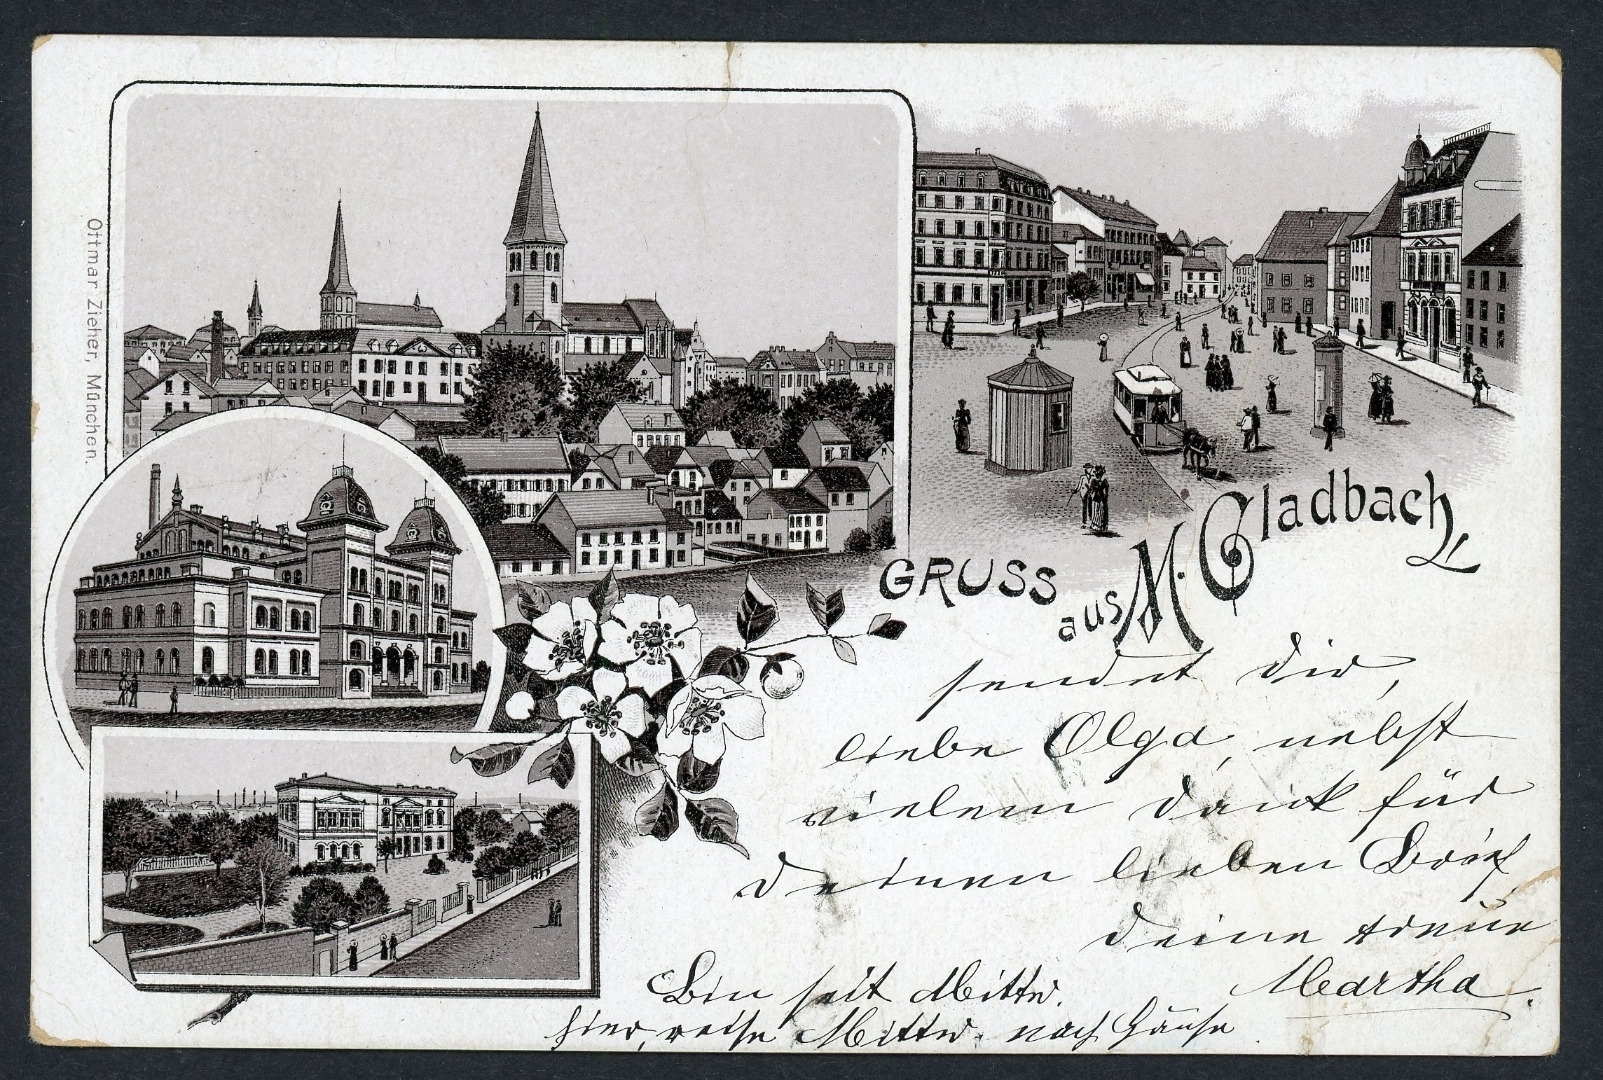 Ottmar Zieher, München.
GRUSS
aus M. Gladbach
sendet Dir,
liebe Olga, nebst
vielem Dank für
Deinen lieben Brief,
Deine treue
Martha.
Bin seit Mittw.
hier, reise Mittw. nach Hause